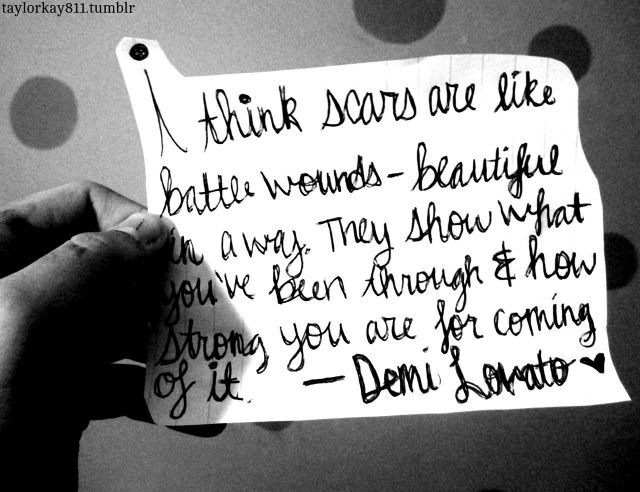 taylorkay811.tumblr
I think scars are like
battle wounds - beautiful
in a way. They show what
you've been through & how
strong you are for coming
of it. — Demi Lovato ♥